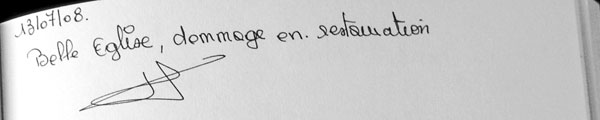 13/07/08.
Belle Eglise, dommage en. restauration